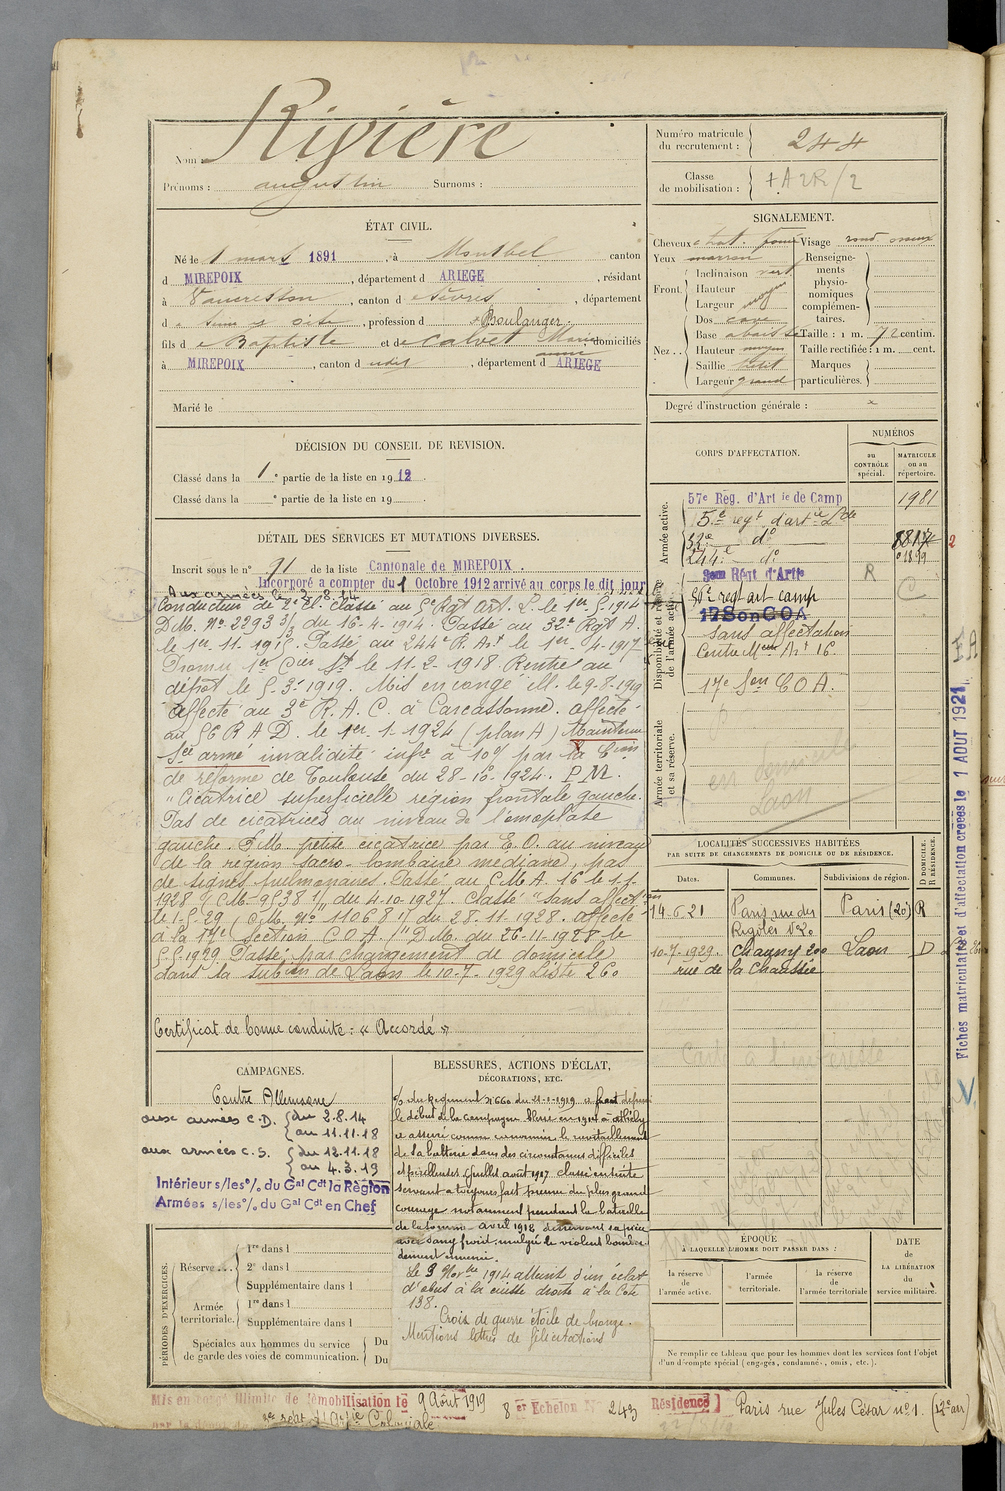 Nom : Rivière
Prénoms : augustin Surnoms :
Numéro matricule du recrutement : 244
Classe de mobilisation : + A 2R/2
ÉTAT CIVIL.
Né le 1 mars 1891 à Montbel canton
d MIREPOIX, département d ARIEGE, résidant
à Vaucresson, canton d e Sèvres, département
d e Seine et Oise, profession d e Boulanger,
fils d e Baptiste et d e Calvet Marie domiciliés
anne
à MIREPOIX, canton d udit, département d ARIEGE
Marié le
SIGNALEMENT.
Cheveux chat. foncé Visage rond
Yeux marron
Front. Inclinaison vert
Hauteur
Largeur moyen
Nez.. Dos cave
Base abaissée
Hauteur moyen
Saillie petit
Largeur grand
Renseignements physionomiques complémentaires.
Taille : 1 m. 72 centim.
Taille rectifiée : 1 m. cent.
Marques particulières.
Degré d'instruction générale :
DÉCISION DU CONSEIL DE REVISION.
Classé dans la 1e partie de la liste en 1912.
Classé dans la e partie de la liste en 19
DÉTAIL DES SERVICES ET MUTATIONS DIVERSES.
Inscrit sous le n° 91 de la liste Cantonale de MIREPOIX.
Incorporé a compter du 1 Octobre 1912 arrivé au corps le dit jour
Aux armées le 2.8.14
Conducteur de 2e cl. classé au 5e Rgt art. L. le 1er 5-1914
D.M. No 2293 3/3 du 16-4-1914. Passé au 32e Rgt A.
le 1er-11-1915. Passé au 244e R. Art le 1er-4-1917
Promu 1er Cier St le 11-2-1918. Rentré au
dépôt le 5-3-1919. Mis en congé ill. le 9-8-1919
affecté au 3e R.A.C. à Carcassonne. affecté
au 56 R A D. le 1er-1-1924 (plan A) Maintenu
Sce armé invalidité infre à 10% par la Cion
de réforme de Toulouse du 28-16-1924. P.M.
"Cicatrice superficielle région frontale gauche.
Pas de cicatrices au niveau de l'omoplate
gauche. P.M. petite cicatrice par E.O. au niveau
de la région sacro-lombaire médiane, pas
de signes pulmonaires. Passé au C M A. 16 le 1-1-
1928 (C.M. 9538 1/ du 4-10-1927. Classé "sans affecton
le 1-5-29 (C.M. No 11068 1/ du 28-11-1928. affecté
à la 17e Section C O A. ("D.M. du 26-11-1928 le
5-5-1929. Passé par changement de domicile)
dans la subion de Laon le 10-7-1929 Liste 260
Certificat de bonne conduite : « Accordé »
CORPS D'AFFECTATION.
NUMÉROS
au CONTRÔLE spécial.
MATRICULE ou au répertoire.
Armée active.
57e Rég. d'Artie de Camp 1981
5e regt d'artie Lde
32e do 8817
244e do 1899
Disponibilité et réserve de l'armée active.
3eme Régt d'Artie R
56e regt art camp C
17 Son C O A
sans affectation
Centre Meur Art 16
17e Son C O A.
Armée territoriale et sa réserve.
en domicile
Laon
LOCALITÉS SUCCESSIVES HABITÉES
PAR SUITE DE CHANGEMENTS DE DOMICILE OU DE RÉSIDENCE.
Dates. Communes. Subdivisions de région. D DOMICILE. R RÉSIDENCE.
14-6-21 Paris rue des Rigoles 120 Paris (20) R
10-7-1929. Chauny 200 rue de la Chaussée Laon D
Fiches matriculaire et d'affectation créées le 1 AOUT 1921
CAMPAGNES.
Contre Allemagne
aux armées C.D. du 2.8.14
au 11.11.18
aux armées C.S. du 12.11.18
au 4.3.19
Intérieur s/les o/o du Gal Cdt la Région
Armées s/les o/o du Gal Cdt en Chef
BLESSURES, ACTIONS D'ÉCLAT,
DÉCORATIONS, ETC.
% du Régiment N°660 du 21-1-1919 a fait depuis
le début de la campagne Blessé en 1914 à
a assuré comme le ravitaillement
de la batterie dans des circonstances difficiles
et périlleuses Juillet août 1917 classé ensuite
servant a toujours fait preuve du plus grand
courage notamment pendant la bataille
de la Somme avril 1918 desservant sa pièce
avec sang froid malgré le violent bombar-
dement ennemi.
Le 3 Novbre 1914 atteint d'un éclat
d'obus à la cuisse droite à la Cote
138.
Croix de guerre étoile de bronze.
Mentions lettres de félicitations
PÉRIODES D'EXERCICES.
Réserve... 1re dans l
2e dans l
Supplémentaire dans l
Armée territoriale. 1re dans l
Supplémentaire dans l
Spéciales aux hommes du service de garde des voies de communication. Du
Du
ÉPOQUE
À LAQUELLE L'HOMME DOIT PASSER DANS :
la réserve de l'armée active.
l'armée territoriale.
la réserve de l'armée territoriale
DATE de LA LIBÉRATION du service militaire.
Ne remplir ce tableau que pour les hommes dont les services font l'objet
d'un décompte spécial (engagés, condamnés, omis, etc.).
Mis en congé illimité de démobilisation le 9 Août 1919 8 er Echelon N° 243 Résidence Paris rue Jules César no 1. (12e arr)
par le dépôt du regt d'Artie Coloniale